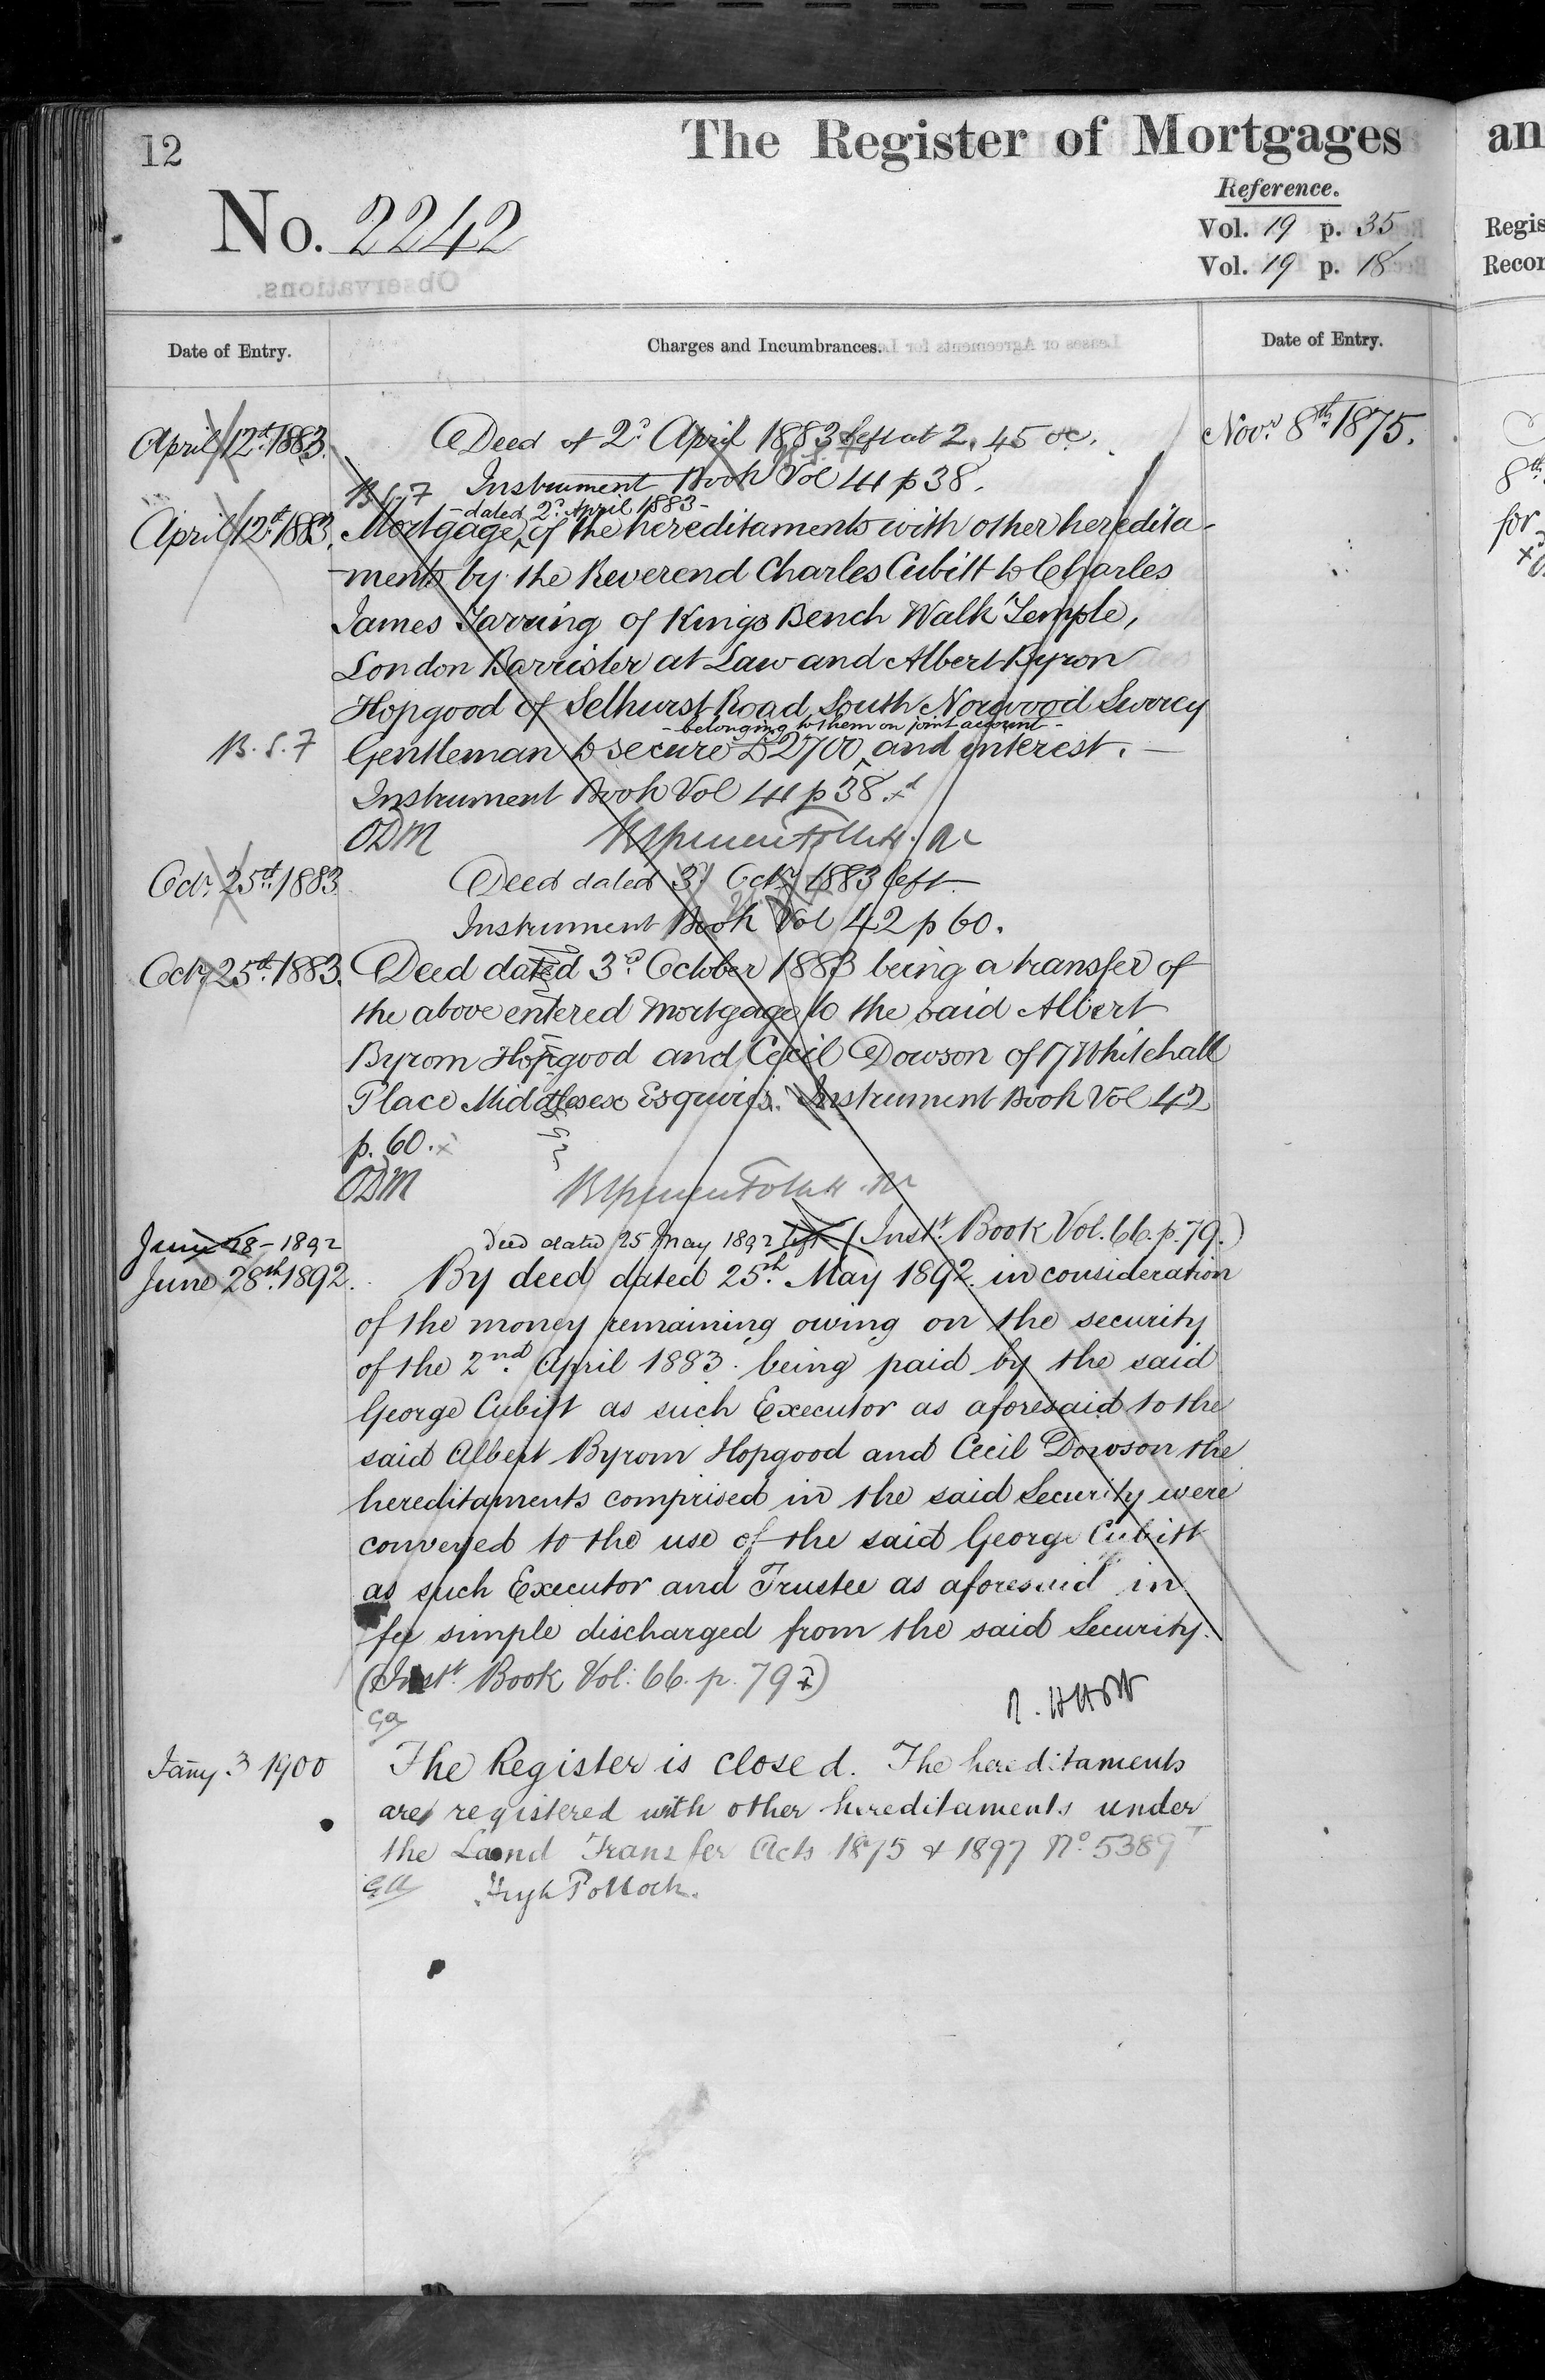 12
The Register of Mortgages
an
Reference.
No. 2242
Vol. 19 p. 35
Vol. 19 p. 18
Regis
Recor
Date of Entry.
Charges and Incumbrances.
Date of Entry.
April 12th 1883.
Deed of 2d April 1883 left at 2.45 oc.
Novr 8th 1875.
Instrument Book Vol 41 p 38.
B.S.7
- dated 2d April 1883 -
April 12th 1883.
Mortgage of the hereditaments with other heredita-
-ments by the Reverend Charles Cubitt to Charles
James Tarring of Kings Bench Walk Temple,
London Barrister at Law and Albert Byron
Hopgood of Selhurst Road South Norwood Surrey
- belonging to them on joint account -
B.S.7
Gentleman to secure £2700 and interest. -
Instrument Book Vol 41 p 38.
ODM
Octr 25th 1883
Deed dated 3d Octr 1883 left
Instrument Book Vol 42 p 60.
Octr 25th 1883.
Deed dated 3d October 1883 being a transfer of
the above entered Mortgage to the said Albert
Byrom Hopgood and Cecil Dowson of 17 Whitehall
Place Middlesex Esquires. Instrument Book Vol 42
p. 60.
ODM
June 28 - 1892
Deed dated 25 May 1892 left (Inst. Book Vol. 66. p. 79.)
June 28th 1892.
By deed dated 25th May 1892 in consideration
of the money remaining owing on the security
of the 2nd April 1883 being paid by the said
George Cubitt as such Executor as aforesaid to the
said Albert Byrom Hopgood and Cecil Dowson the
hereditaments comprised in the said Security were
conveyed to the use of the said George Cubitt
as such Executor and Trustee as aforesaid in
fee simple discharged from the said Security.
(Inst. Book Vol: 66. p. 79)
Ga
Jany 3 1900
The Register is closed. The hereditaments
are registered with other hereditaments under
the Land Transfer Acts 1875 & 1897 No 5389
GA
Hugh Pollock.